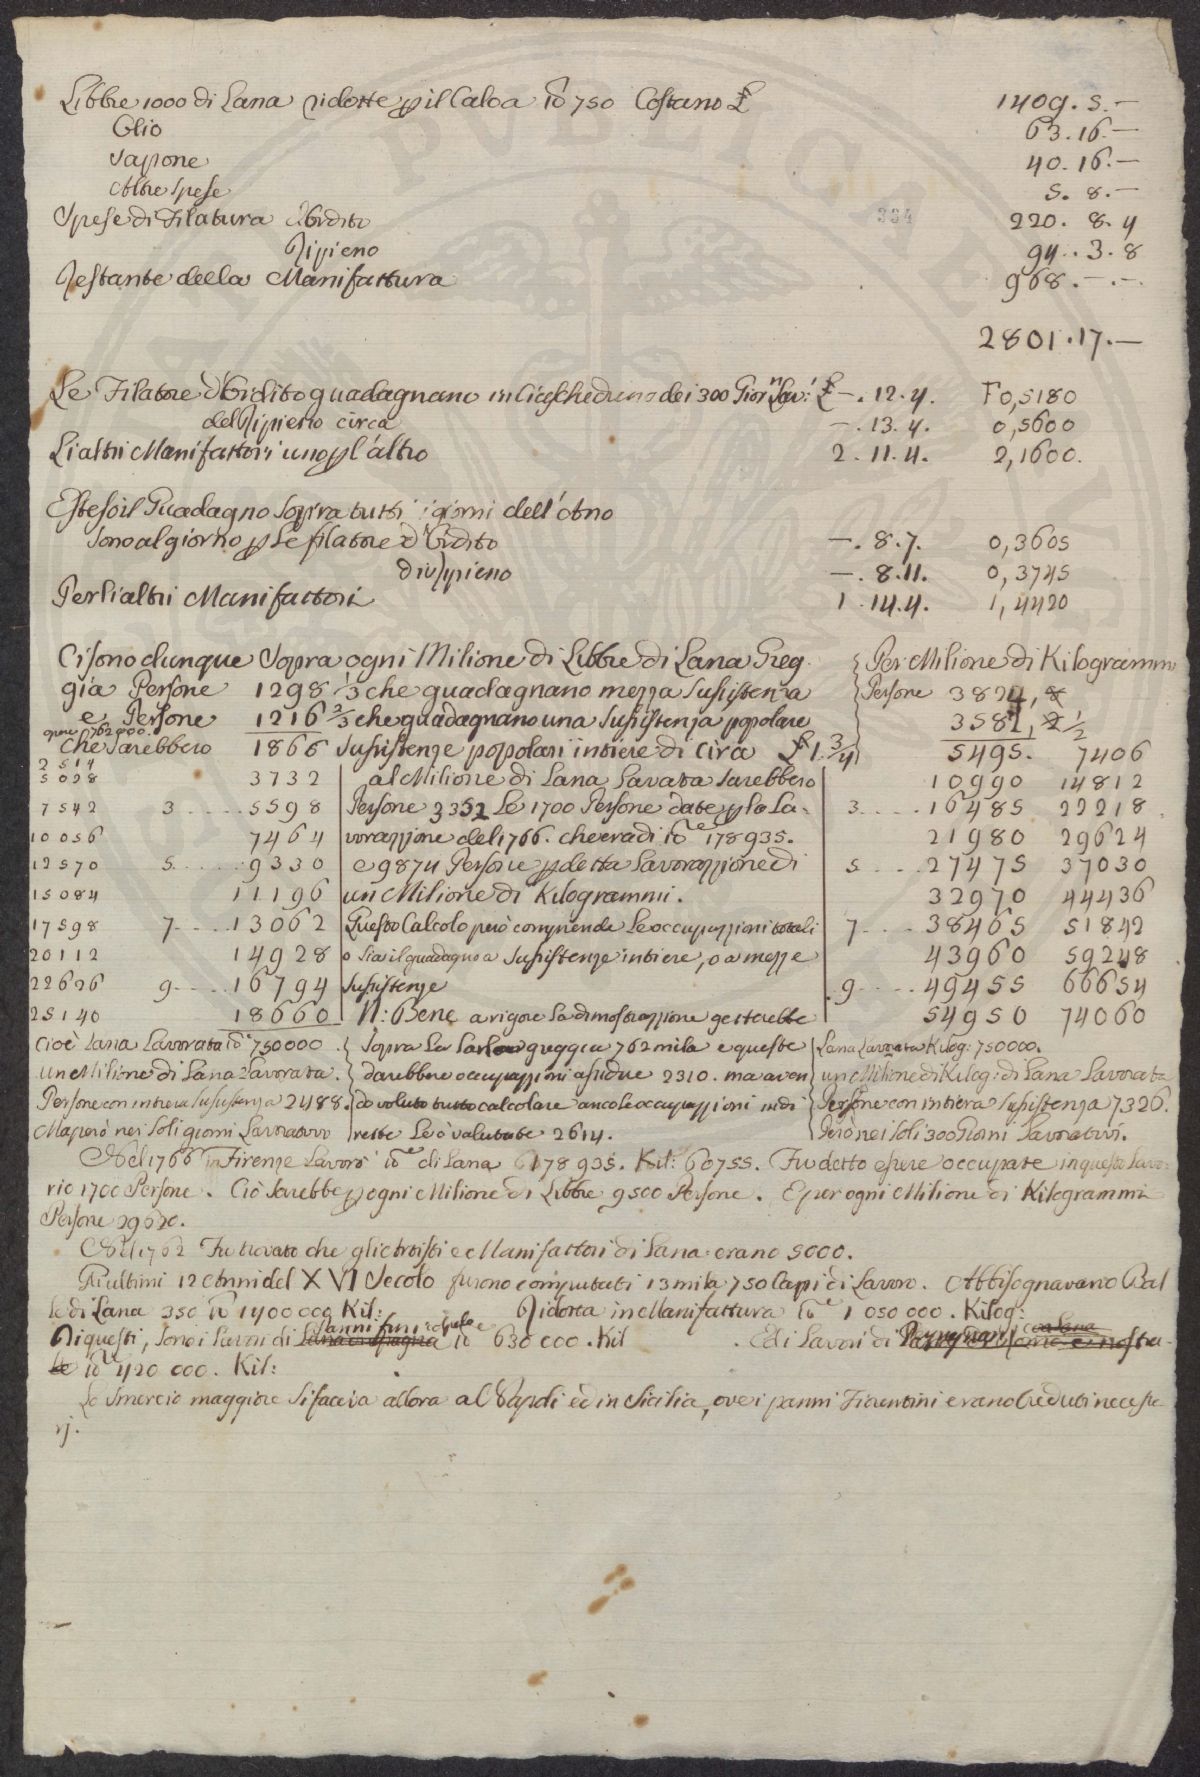 Libbre 1000 di Lana ridotte p il Calo a lb 750 Costano £ 1409. 5. —
Olio 63. 16. —
Sapone 40. 16. —
Altre Spese 5. 8. —
Spese di Filatura d'Ordito 220. 8. 4
Ripieno 94. 3. 8
Restante della Manifattura 968. —. —.
334
2801. 17. —
Le Filatore d'Ordito guadagnano in Ciascheduno dei 300 Giorⁿⁱ Lav: £ —. 12. 4. F 0,5180
del Ripieno circa —. 13. 4. 0,5600
Li altri Manifattori uno p l'altro 2. 11. 4. 2,1600.
Esteso il Guadagno Sopra tutti i giorni dell'Anno
Sono al giorno p Le filatore d'Ordito —. 8. 7. 0,3605
di Ripieno —. 8. 11. 0,3745
Per li altri Manifattori 1. 14. 4. 1,4420
Ci sono dunque Sopra ogni Milione di Libbre di Lana Greg- Per Milione di Kilogrammi
gia Persone 1298 1/3 che guadagnano mezza Sussistenza Persone 3824,
e Persone 1216 2/3 che guadagnano una Sussistenza popolare 3582, 1/2
opure p 762000.
Che Sarebbero 1866 Sussistenze popolari intiere di circa £ 1 3/4 5495. 7406
2514
5028 3732 al Milione di Lana Lavata Sarebbero 10990 14812
7542 3 .... 5598 Persone 3352 Le 1700 Persone date p la La- 3 .... 16485 22218
10056 7464 vorazzione del 1766. che era di lbᵉ 178935. 21980 29624
12570 5 .... 9330 e 9874 Persone p detta Lavorazzione di 5 .... 27475 37030
15084 11196 un Milione di Kilogrammi. 32970 44436
17598 7 .... 13062 Questo Calcolo però comprende Le occupazzioni totali 7 .... 38465 51842
20112 14928 o Sia il guadagno a Sussistenze intiere, o a mezze 43960 59248
22626 9 .... 16794 Sussistenze 9 .... 49455 66654
25140 18660 N: Bene a rigore La dimostrazzione gesterebbe 54950 74060
Cioè Lana Lavorata lbᵉ 750000. Sopra La Lana greggia 762 mila e queste Lana Lavorata Kilog: 750000.
un Milione di Lana Lavorata. darebbero occupazzioni assidue 2310. ma aven un Milione di Kilog: di Lana Lavorata
Persone con intiera Sussistenza 2488. do voluto tutto calcolare anco Le occupazzioni indi Persone con intiera Sussistenza 7326.
Ma però nei Soli giorni Lavorativi rette Le ò valutate 2614. Però nei Soli 300 Giorni Lavorativi.
Nel 1766 in Firenze Lavorò lbᵉ di Lana 178935. Kil: 60755. Fu detto essere occupate in questo Lavo-
rio 1700 Persone. Ciò Sarebbe p ogni Milione di Libbre 9500 Persone. E per ogni Milione di Kilogrammi
Persone 29620.
Nel 1762 Fu trovato che gli Artisti e Manifattori di Lana erano 5000.
Gli ultimi 12 Anni del XVI Secolo furono computati 13 mila 750 Capi di Lavoro. Abbisognavano Bal
le di Lana 350 lb 1400000 Kil: Ridotta in Manifattura lbᵉ 1050000. Kilog:
Panni fini
Di questi, Sono i Lavori di lbᵉ 630000. Kil . E di Lavori di nostra-
le lbᵉ 420000. Kil:
Lo Smercio maggiore Si faceva allora a Napoli ed in Sicilia, ove i panni Fiorentini erano Creduti necessa-
rj.